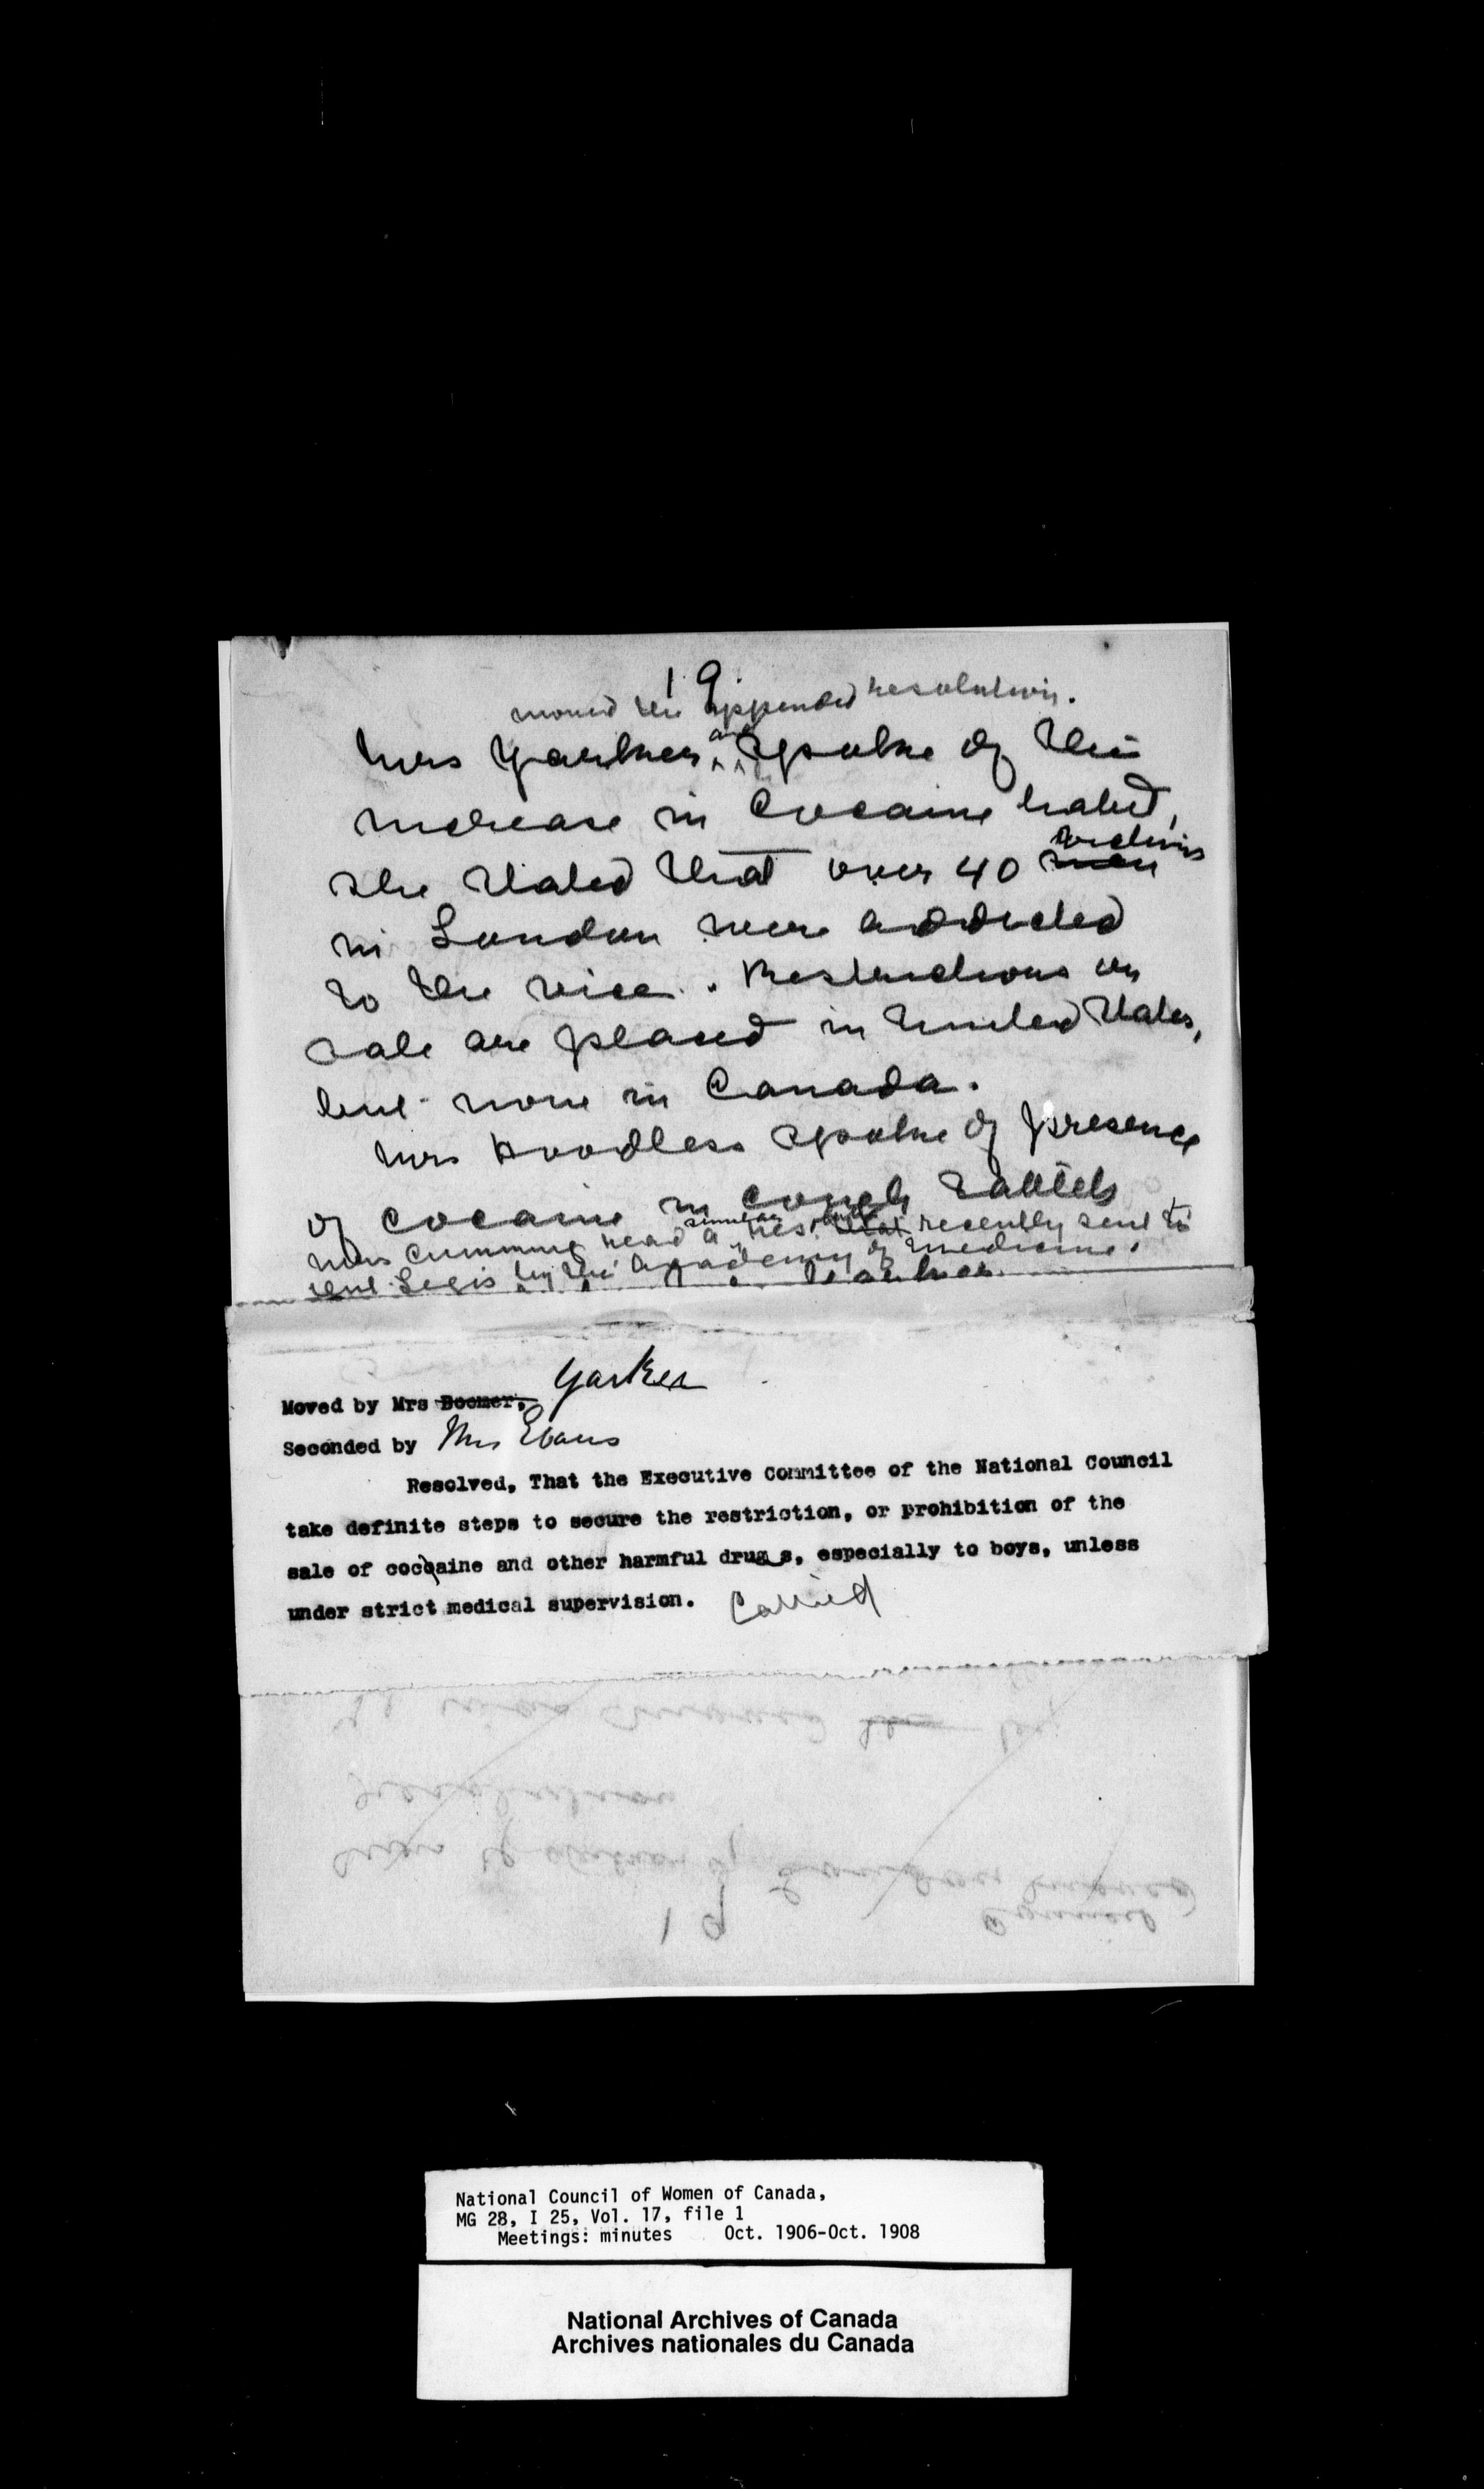 19
moved the appended resolution.
Mrs Yarker and spoke of the
increase in Cocaine habit,
victims
she stated that over 40 men
in London were addicted
to the vice. Restrictions on
sale are placed in United States,
but none in Canada.
Mrs Hoodless spoke of presence
of cocaine in cough tablets
Mrs Cumming read a similar res. that recently sent to
Legis by the Academy of Medicine.
Yarker
Moved by Mrs Boomer,
Seconded by Mrs Evans
Resolved, That the Executive Committee of the National Council
take definite steps to secure the restriction, or prohibition of the
sale of cocoaine and other harmful drug s, especially to boys, unless
under strict medical supervision. Carried
19
National Council of Women of Canada,
MG 28, I 25, Vol. 17, file 1
Meetings: minutes Oct. 1906-Oct. 1908
National Archives of Canada
Archives nationales du Canada